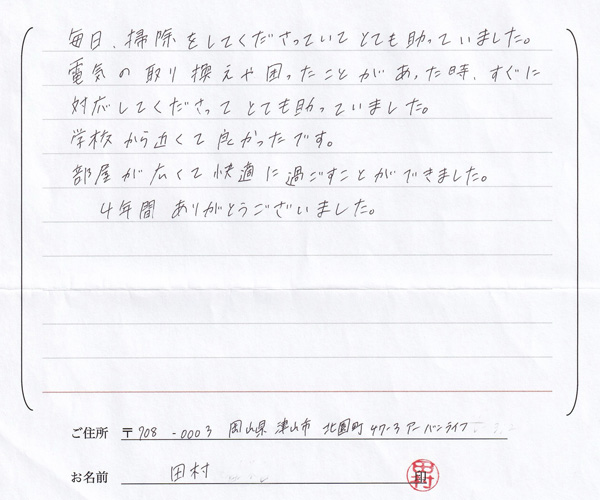 毎日、掃除をしてくださっていてとても助っていました。
電気の取り換えや困ったことがあった時、すぐに
対応してくださってとても助っていました。
学校から近くて良かったです。
部屋が広くて快適に過ごすことができました。
4年間ありがとうございました。
ご住所 〒708-0003 岡山県津山市北園町47-3アーバンライフ
お名前 田村 印